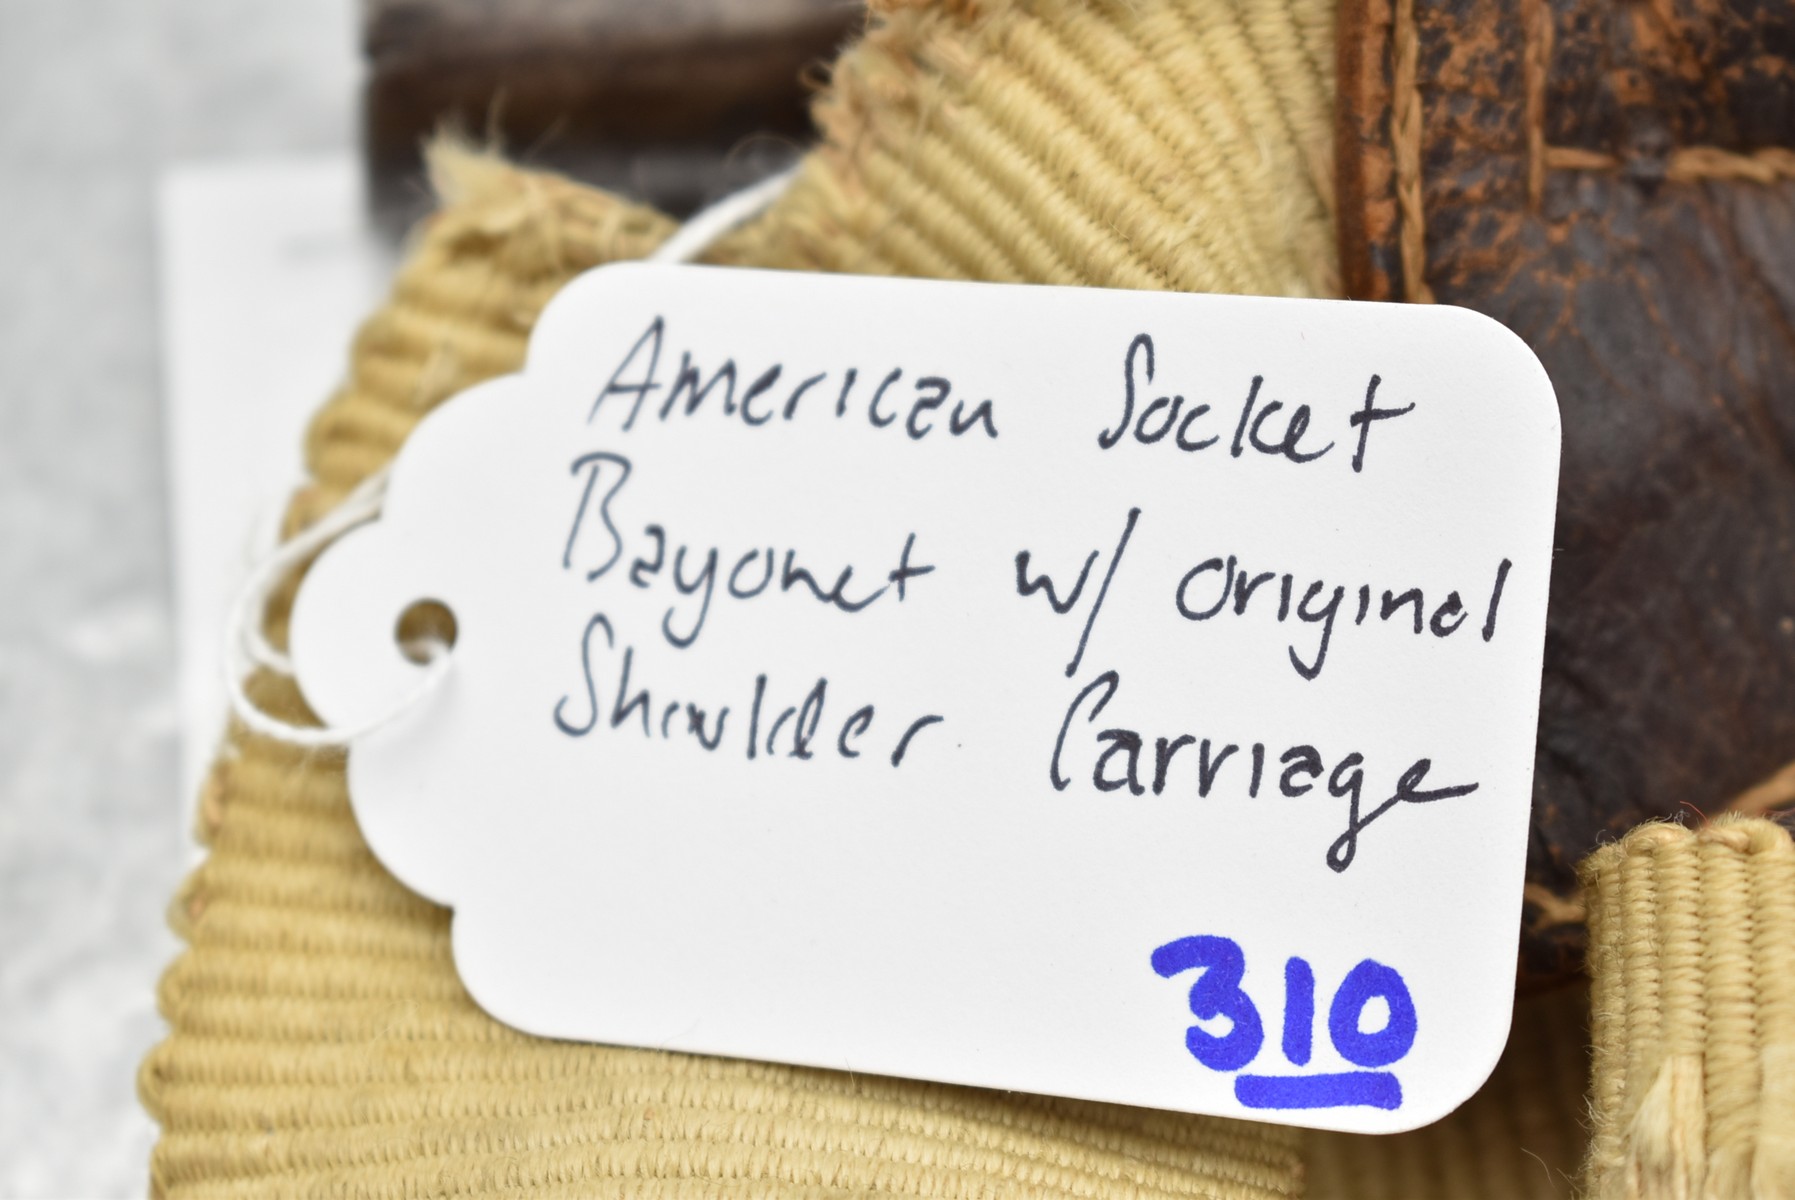 American Socket
Bayonet w/ original
Shoulder Carriage
310